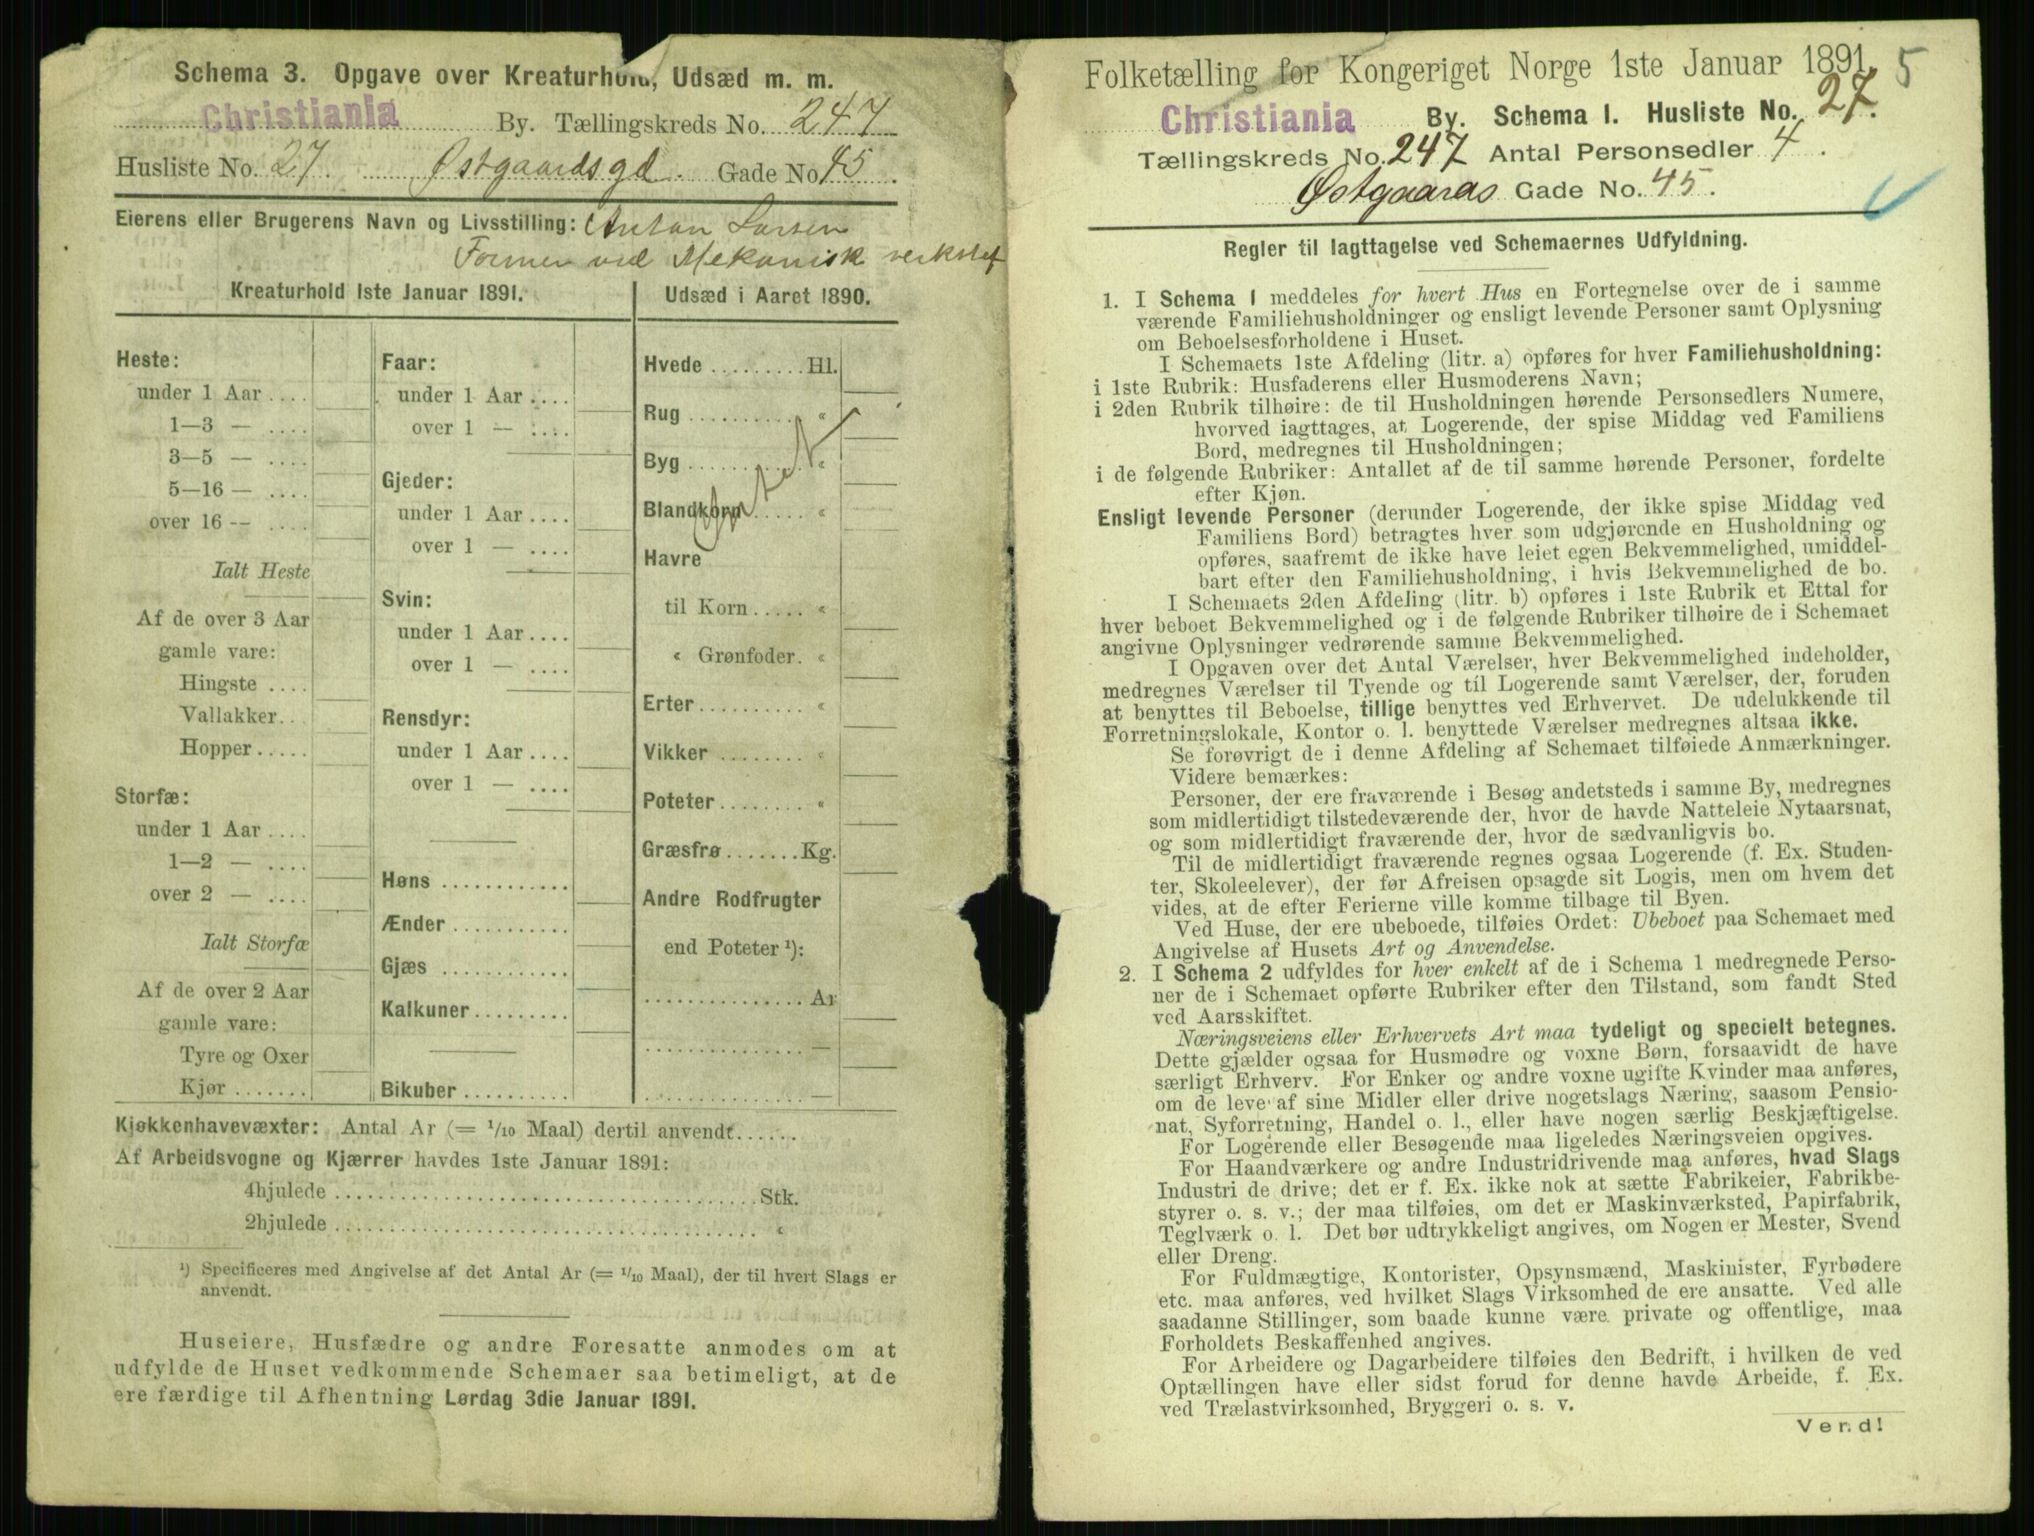 Schema 3. Opgave over Kreaturhold, Udsæd m. m.
Christiania By. Tællingskreds No. 247
Husliste No. 27. Østgaardsgd. Gade No 45.
Eierens eller Brugerens Navn og Livsstilling: Anton Larsen
Former ved Mekanisk verksted
Kreaturhold 1ste Januar 1891.
Heste:
under 1 Aar ....
1—3 — ....
3—5 — ....
5—16 — ....
over 16 -- ....
Ialt Heste
Af de over 3 Aar
gamle vare:
Hingste ....
Vallakker...
Hopper.....
Storfæ:
under 1 Aar ....
1—2 — ....
over 2 — ....
Ialt Storfæ
Af de over 2 Aar
gamle vare:
Tyre og Oxer
Kjør .......
Faar:
under 1 Aar ....
over 1 — ....
Gjeder:
under 1 Aar ....
over 1 — ....
Svin:
under 1 Aar ....
over 1 — ....
Rensdyr:
under 1 Aar ....
over 1 — ....
Høns ............
Ænder ...........
Gjæs ............
Kalkuner.........
Bikuber ..........
Udsæd i Aaret 1890.
Hvede .........Hl.
Rug ........... «
Byg ........... «
Blandkorn ..... «
Havre
til Korn..... «
« Grønfoder. «
Erter.......... «
Vikker ........ «
Poteter........ «
Græsfrø .......Kg.
Andre Rodfrugter
end Poteter ¹):
............... Ar
............... —
............... —
Kjøkkenhavevæxter: Antal Ar (= 1/10 Maal) dertil anvendt......
Af Arbeidsvogne og Kjærrer havdes 1ste Januar 1891:
4hjulede ........................................Stk.
2hjulede ........................................ «
¹) Specificeres med Angivelse af det Antal Ar (= 1/10 Maal), der til hvert Slags er
anvendt.
Huseiere, Husfædre og andre Foresatte anmodes om at
udfylde de Huset vedkommende Schemaer saa betimeligt, at de
ere færdige til Afhentning Lørdag 3die Januar 1891.
Folketælling for Kongeriget Norge 1ste Januar 1891. 5
Christiania By. Schema 1. Husliste No. 27.
Tællingskreds No. 247 Antal Personsedler 4.
Østgaards Gade No. 45.
Regler til Iagttagelse ved Schemaernes Udfyldning.
1. I Schema 1 meddeles for hvert Hus en Fortegnelse over de i samme
værende Familiehusholdninger og ensligt levende Personer samt Oplysning
om Beboelsesforholdene i Huset.
I Schemaets 1ste Afdeling (litr. a) opføres for hver Familiehusholdning:
i 1ste Rubrik: Husfaderens eller Husmoderens Navn;
i 2den Rubrik tilhøire: de til Husholdningen hørende Personsedlers Numere,
hvorved iagttages, at Logerende, der spise Middag ved Familiens
Bord, medregnes til Husholdningen;
i de følgende Rubriker: Antallet af de til samme hørende Personer, fordelte
efter Kjøn.
Ensligt levende Personer (derunder Logerende, der ikke spise Middag ved
Familiens Bord) betragtes hver som udgjørende en Husholdning og
opføres, saafremt de ikke have leiet egen Bekvemmelighed, umiddel-
bart efter den Familiehusholdning, i hvis Bekvemmelighed de bo.
I Schemaets 2den Afdeling (litr. b) opføres i 1ste Rubrik et Ettal for
hver beboet Bekvemmelighed og i de følgende Rubriker tilhøire de i Schemaet
angivne Oplysninger vedrørende samme Bekvemmelighed.
I Opgaven over det Antal Værelser, hver Bekvemmelighed indeholder,
medregnes Værelser til Tyende og til Logerende samt Værelser, der, foruden
at benyttes til Beboelse, tillige benyttes ved Erhvervet. De udelukkende til
Forretningslokale, Kontor o. l. benyttede Værelser medregnes altsaa ikke.
Se forøvrigt de i denne Afdeling af Schemaet tilføiede Anmærkninger.
Videre bemærkes:
Personer, der ere fraværende i Besøg andetsteds i samme By, medregnes
som midlertidigt tilstedeværende der, hvor de havde Natteleie Nytaarsnat,
og som midlertidigt fraværende der, hvor de sædvanligvis bo.
Til de midlertidigt fraværende regnes ogsaa Logerende (f. Ex. Studen-
ter, Skoleelever), der før Afreisen opsagde sit Logis, men om hvem det
vides, at de efter Ferierne ville komme tilbage til Byen.
Ved Huse, der ere ubeboede, tilføies Ordet: Ubeboet paa Schemaet med
Angivelse af Husets Art og Anvendelse.
2. I Schema 2 udfyldes for hver enkelt af de i Schema 1 medregnede Perso-
ner de i Schemaet opførte Rubriker efter den Tilstand, som fandt Sted
ved Aarsskiftet.
Næringsveiens eller Erhvervets Art maa tydeligt og specielt betegnes.
Dette gjælder ogsaa for Husmødre og voxne Børn, forsaavidt de have
særligt Erhverv. For Enker og andre voxne ugifte Kvinder maa anføres,
om de leve af sine Midler eller drive nogetslags Næring, saasom Pensio-
nat, Syforretning, Handel o. l., eller have nogen særlig Beskjæftigelse.
For Logerende eller Besøgende maa ligeledes Næringsveien opgives.
For Haandværkere og andre Industridrivende maa anføres, hvad Slags
Industri de drive; det er f. Ex. ikke nok at sætte Fabrikeier, Fabrikbe-
styrer o. s. v.; der maa tilføies, om det er Maskinværksted, Papirfabrik,
Teglværk o. l. Det bør udtrykkeligt angives, om Nogen er Mester, Svend
eller Dreng.
For Fuldmægtige, Kontorister, Opsynsmænd, Maskinister, Fyrbødere
etc. maa anføres, ved hvilket Slags Virksomhed de ere ansatte. Ved alle
saadanne Stillinger, som baade kunne være private og offentlige, maa
Forholdets Beskaffenhed angives.
For Arbeidere og Dagarbeidere tilføies den Bedrift, i hvilken de ved
Optællingen have eller sidst forud for denne havde Arbeide, f. Ex.
ved Trælastvirksomhed, Bryggeri o. s. v.
Vend!